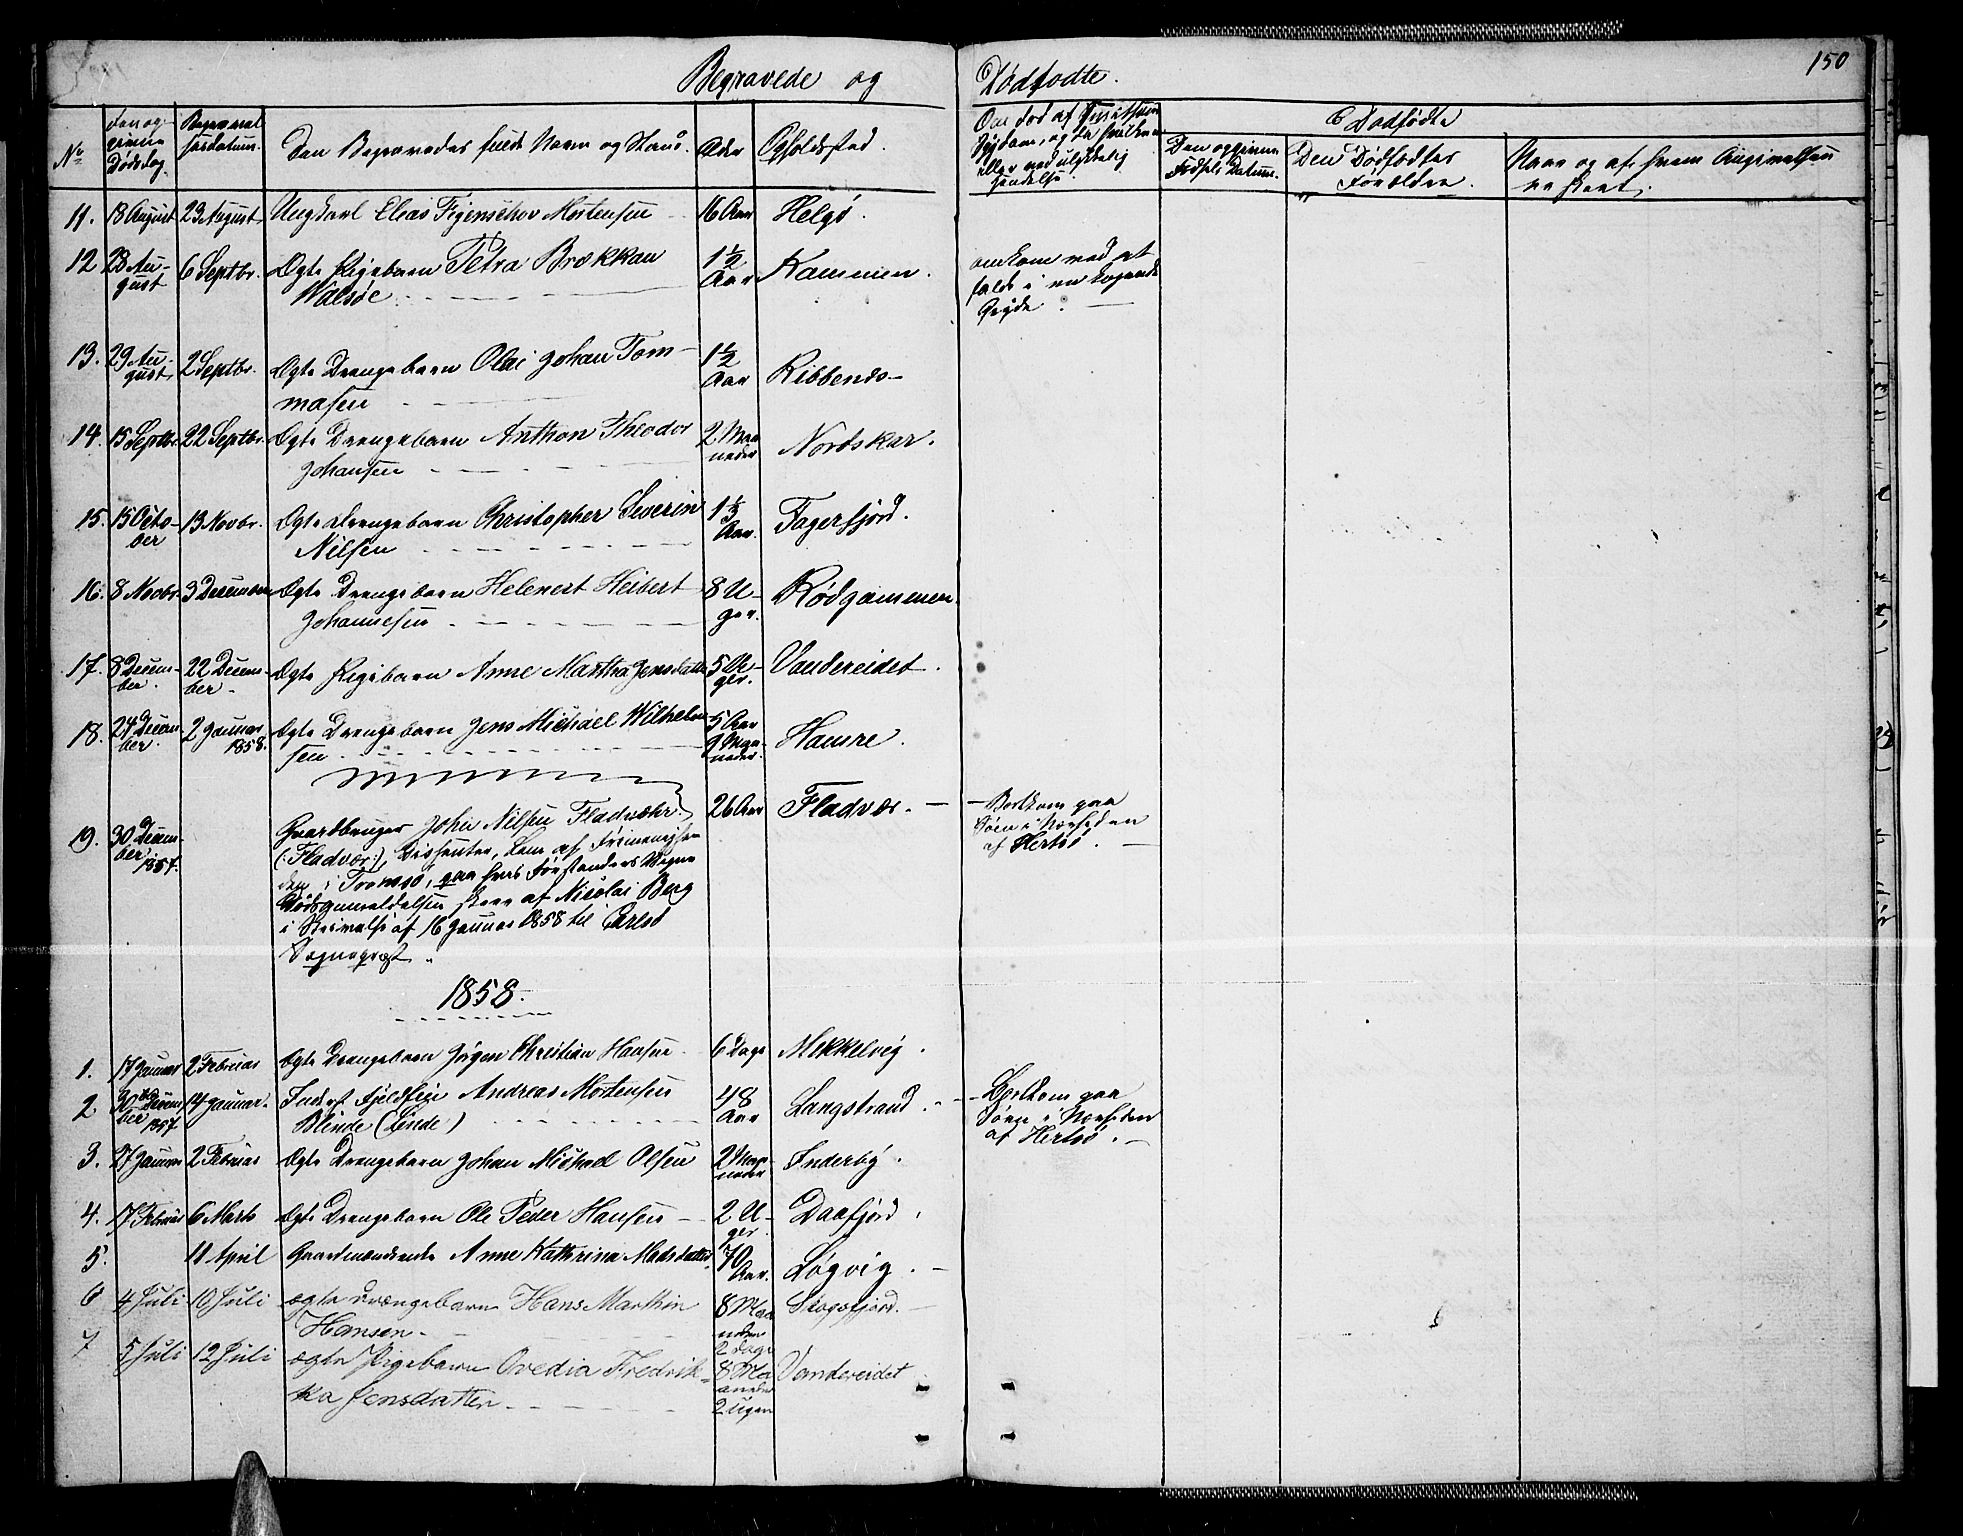 150
Begravede og Dødfødte.
No
Den opgivne Dødsdag.
Begravelsesdatum.
Den Begravedes fulde Navn og Stand.
Alder
Opholdsted.
Dødfødte
Den opgivne Fødsels Datum.
Den Dødfødtes Forældre.
Naar og af hvem Angivelsen er skeet.
11. 18 August 23 August Ungkarl Elias Figenschov Mortensen 16 Aar Helgø.
12 28 August 6 Septbr. Ægte Pigebarn Petra Brækkan
Walsøe. 1½ Aar Kammen. omkom ved at
falde i en kogende
Gryde.
13. 29 August 2 Septbr. Ægte Drengebarn Olai Johan Tom-
masen 1½ Aar Ribbenæs
14. 15 Septbr. 22 Septbr. Ægte Drengebarn Anthon Theodor
Johansen 2 Maaneder Nordskar.
15. 15 October 13 Novbr. Ægte Drengebarn Christopher Severin
Nilsen 1⅓ Aar. Fagerfjord.
16. 8 Novbr. 3 December Ægte Drengebarn Helenert Heibert
Johannesen 8 Uger. Rødgammen.
17. 8 December. 22 December. Ægte Pigebarn Anne Martha Jensdatter 5 Uger. Vandereidet.
18. 24 December. 2 Januar 1858. Ægte Drengebarn Jens Michael Wilhelm-
sen 5 Aar 9 Maaneder. Hamre.
19. 30 December 1857. Gaardbruger Johan Nilsen Fladvæhr.
(:Fladvær:), Dissenter, Lem af Frimenighe-
den i Tromsø, paa hvis Forstanders Vegne
Dødsanmeldelsen skeer af Nicolai Berg
i Skrivelse af 16 Januar 1858 til Carlsø
Sognepræst. 26 Aar Fladvær. Bortkom paa
Søen i Nærheden
af Hertsø.
1858.
1. 17 Januar 2 Februar Ægte Drengebarn Jørgen Christian Hansen 6 Dage Mikkelvig.
2 30 December 1857. 14 Januar. Inderst Fjeldfin Andreas Mortensen
Blinde (Linde) 48 Aar Langstrand. Bortkom paa
Søen i Nærheden
af Hertsø.
3. 27 Januar 2 Februar Ægte Drengebarn Johan Michael Olsen 2 Maaneder Inderby.
4. 17 Februar 6 Marts Ægte Drengebarn Ole Peder Hansen 2 Uger Daafjord.
5. 11 April Gaardmandsenke Anne Kathrina Madsdatter 70 Aar. Løgvig.
6 4 Juli 10 Juli ægte Drengebarn Hans Marthin
Hansen 8 Maaneder 2 Dage Skogsfjord.
7 5 Juli 12 Juli ægte Pigebarn Ovedia Fredrik-
ka Jensdatter 8 Maaneder 2 Uger Vandereidet